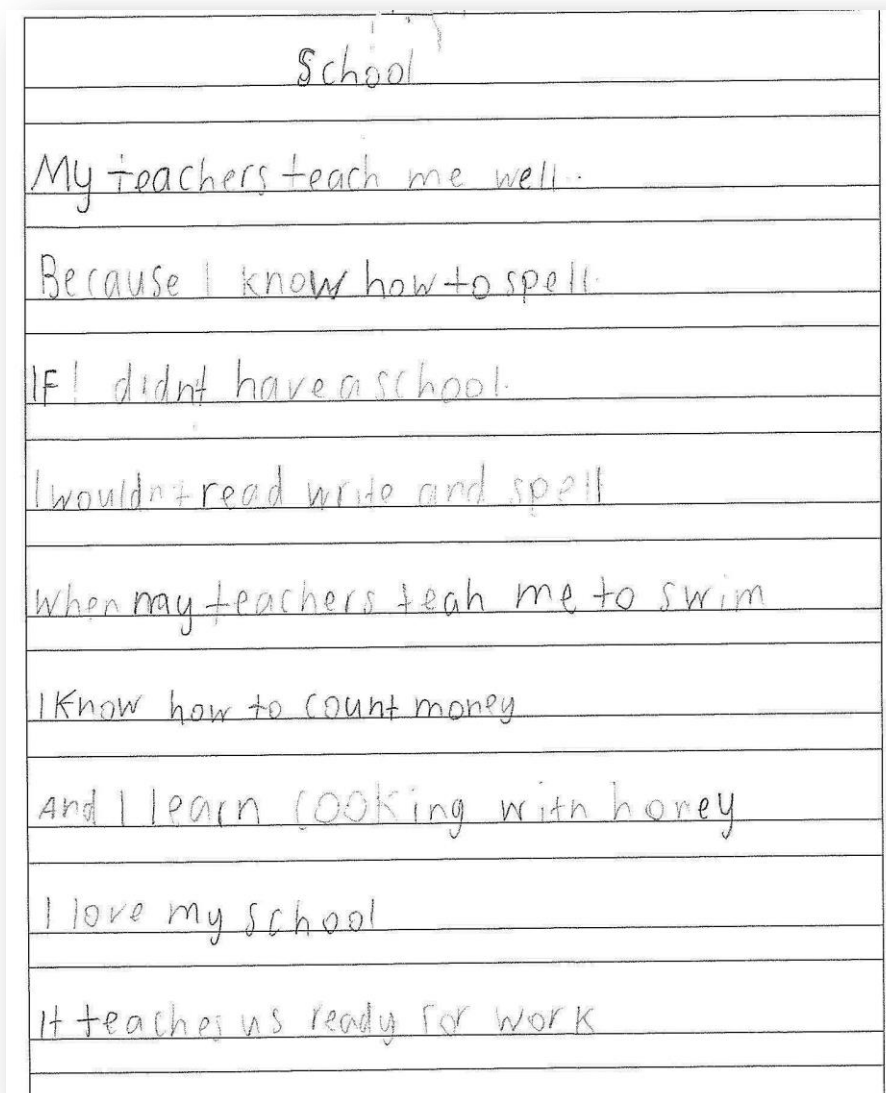 School
My teachers teach me well.
Because I know how to spell.
IF I didnt have a school.
I wouldnt read write and spell
When my teachers teah me to swim
I Know how to count money
And I learn cooking with honey
I love my school
It teaches us ready for work